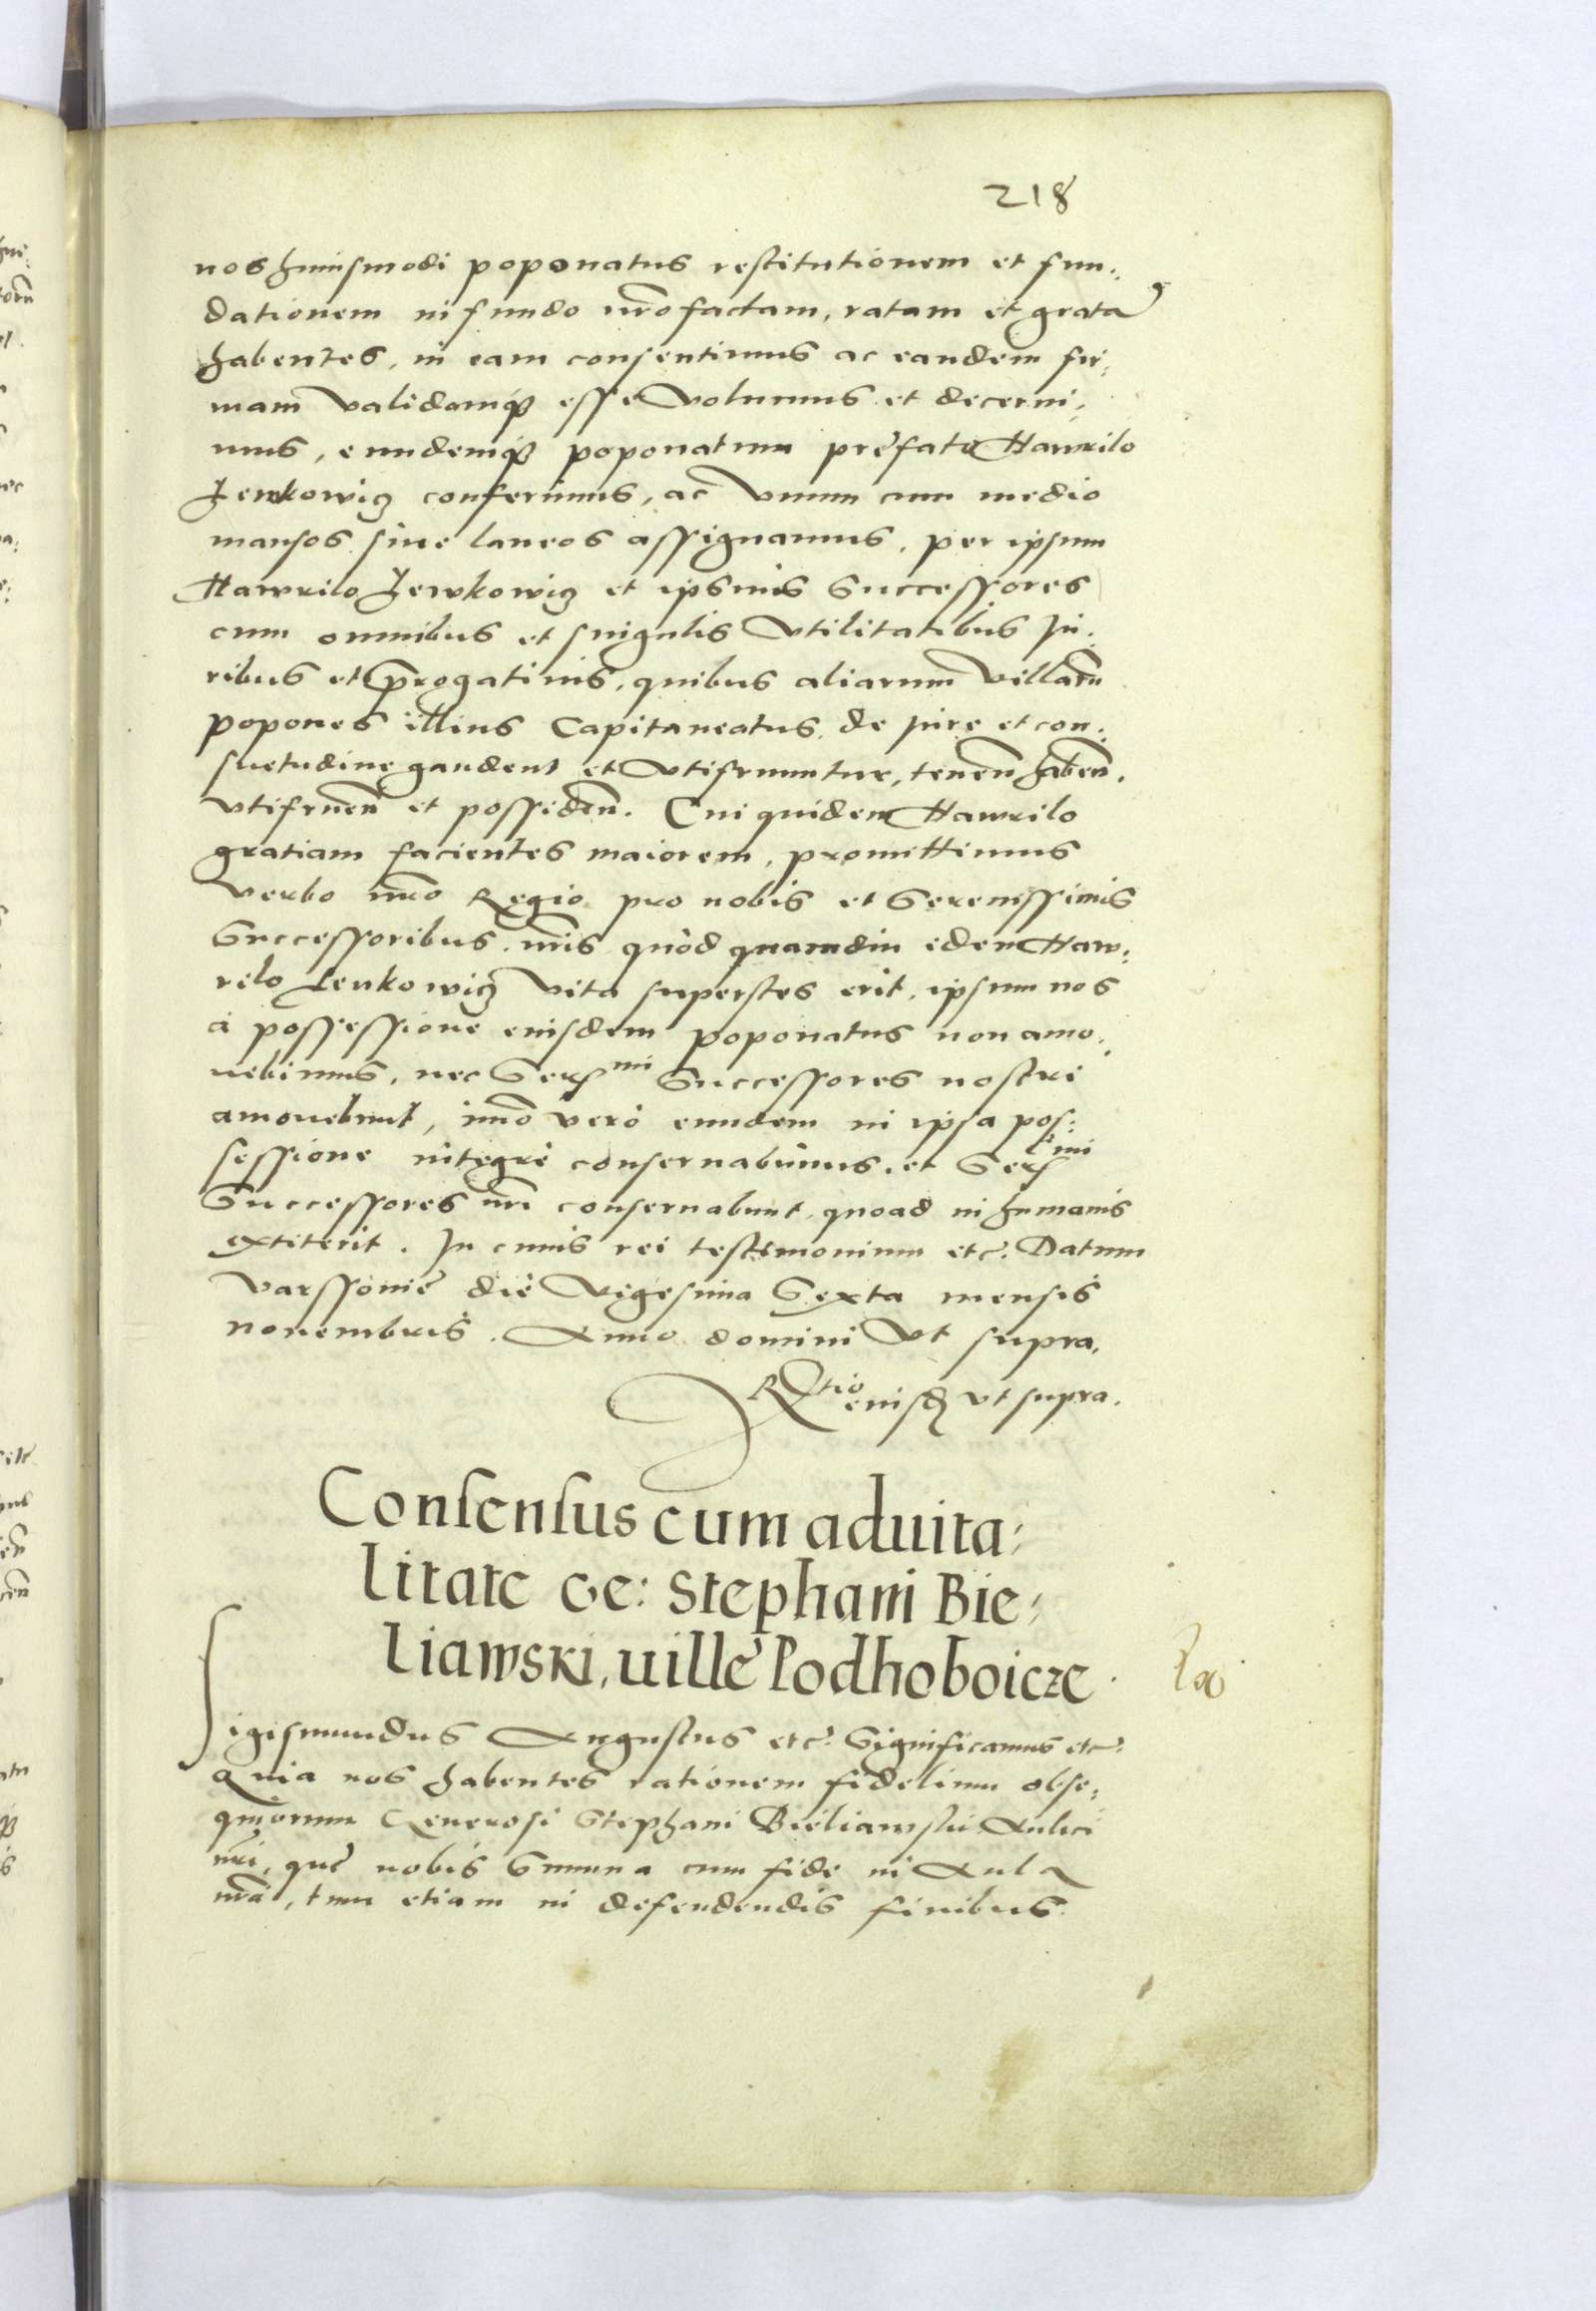 218
nos huiusmodi poponatus restitutionem et fun:
dationem in fundo nr̄o factam, ratam et gratā
habentes, in eam consentimus ac eandem fir:
mam validamq; esse volumus et decerni:
mus, eundemq; poponatum prefato Hawrilo
Jenkowicz conferimus, ac vnum cum medio
mansos siue laneos assignamus, per ipsum
Hawrilo Jenkowicz et ipsius Successores
cum omnibus et singulis vtilitatibus Ju:
ribus et p̄rogatiuis, quibus aliarum villarū
popones illius Capitaneatus de Jure et con:
suetudine gaudent et vtifruuntur, tenen̄ haben̄.
vtifruen̄ et possiden̄. Cui quidem Hawrilo
gratiam facientes maiorem, promittimus
verbo nr̄o Regio pro nobis et Serenissimis
Successoribus nr̄is quòd quamdiu idem Haw:
rilo Jenkowicz vita superstes erit, ipsum nos
à possessione eiusdem poponatus non amo:
uebimus, nec Ser^mi Successores nostri
amouebunt, imò verò eundem in ipsa pos:
sessione integrè conseruabimus, et Ser^mi
Successores nr̄i conseruabunt, quoad in humanis
extiterit. In cuius rei testimonium etc. Datum
varssovie die vigesima Sexta mensis
nouembris. Anno domini vt supra.
R^tio eiusd; vt supra.
Consensus cum aduita:
litate Ge: Stephani Bie:
liawski, uille Podhoboicze
Sigismundus Augustus etc. Significamus etc.
Quia nos habentes rationem fidelium obse:
quiorum Generosi Stephani Bieliawski Aulici
nr̄i, que nobis Summa cum fide in Aula
nr̄a, tum etiam in defendendis finibus